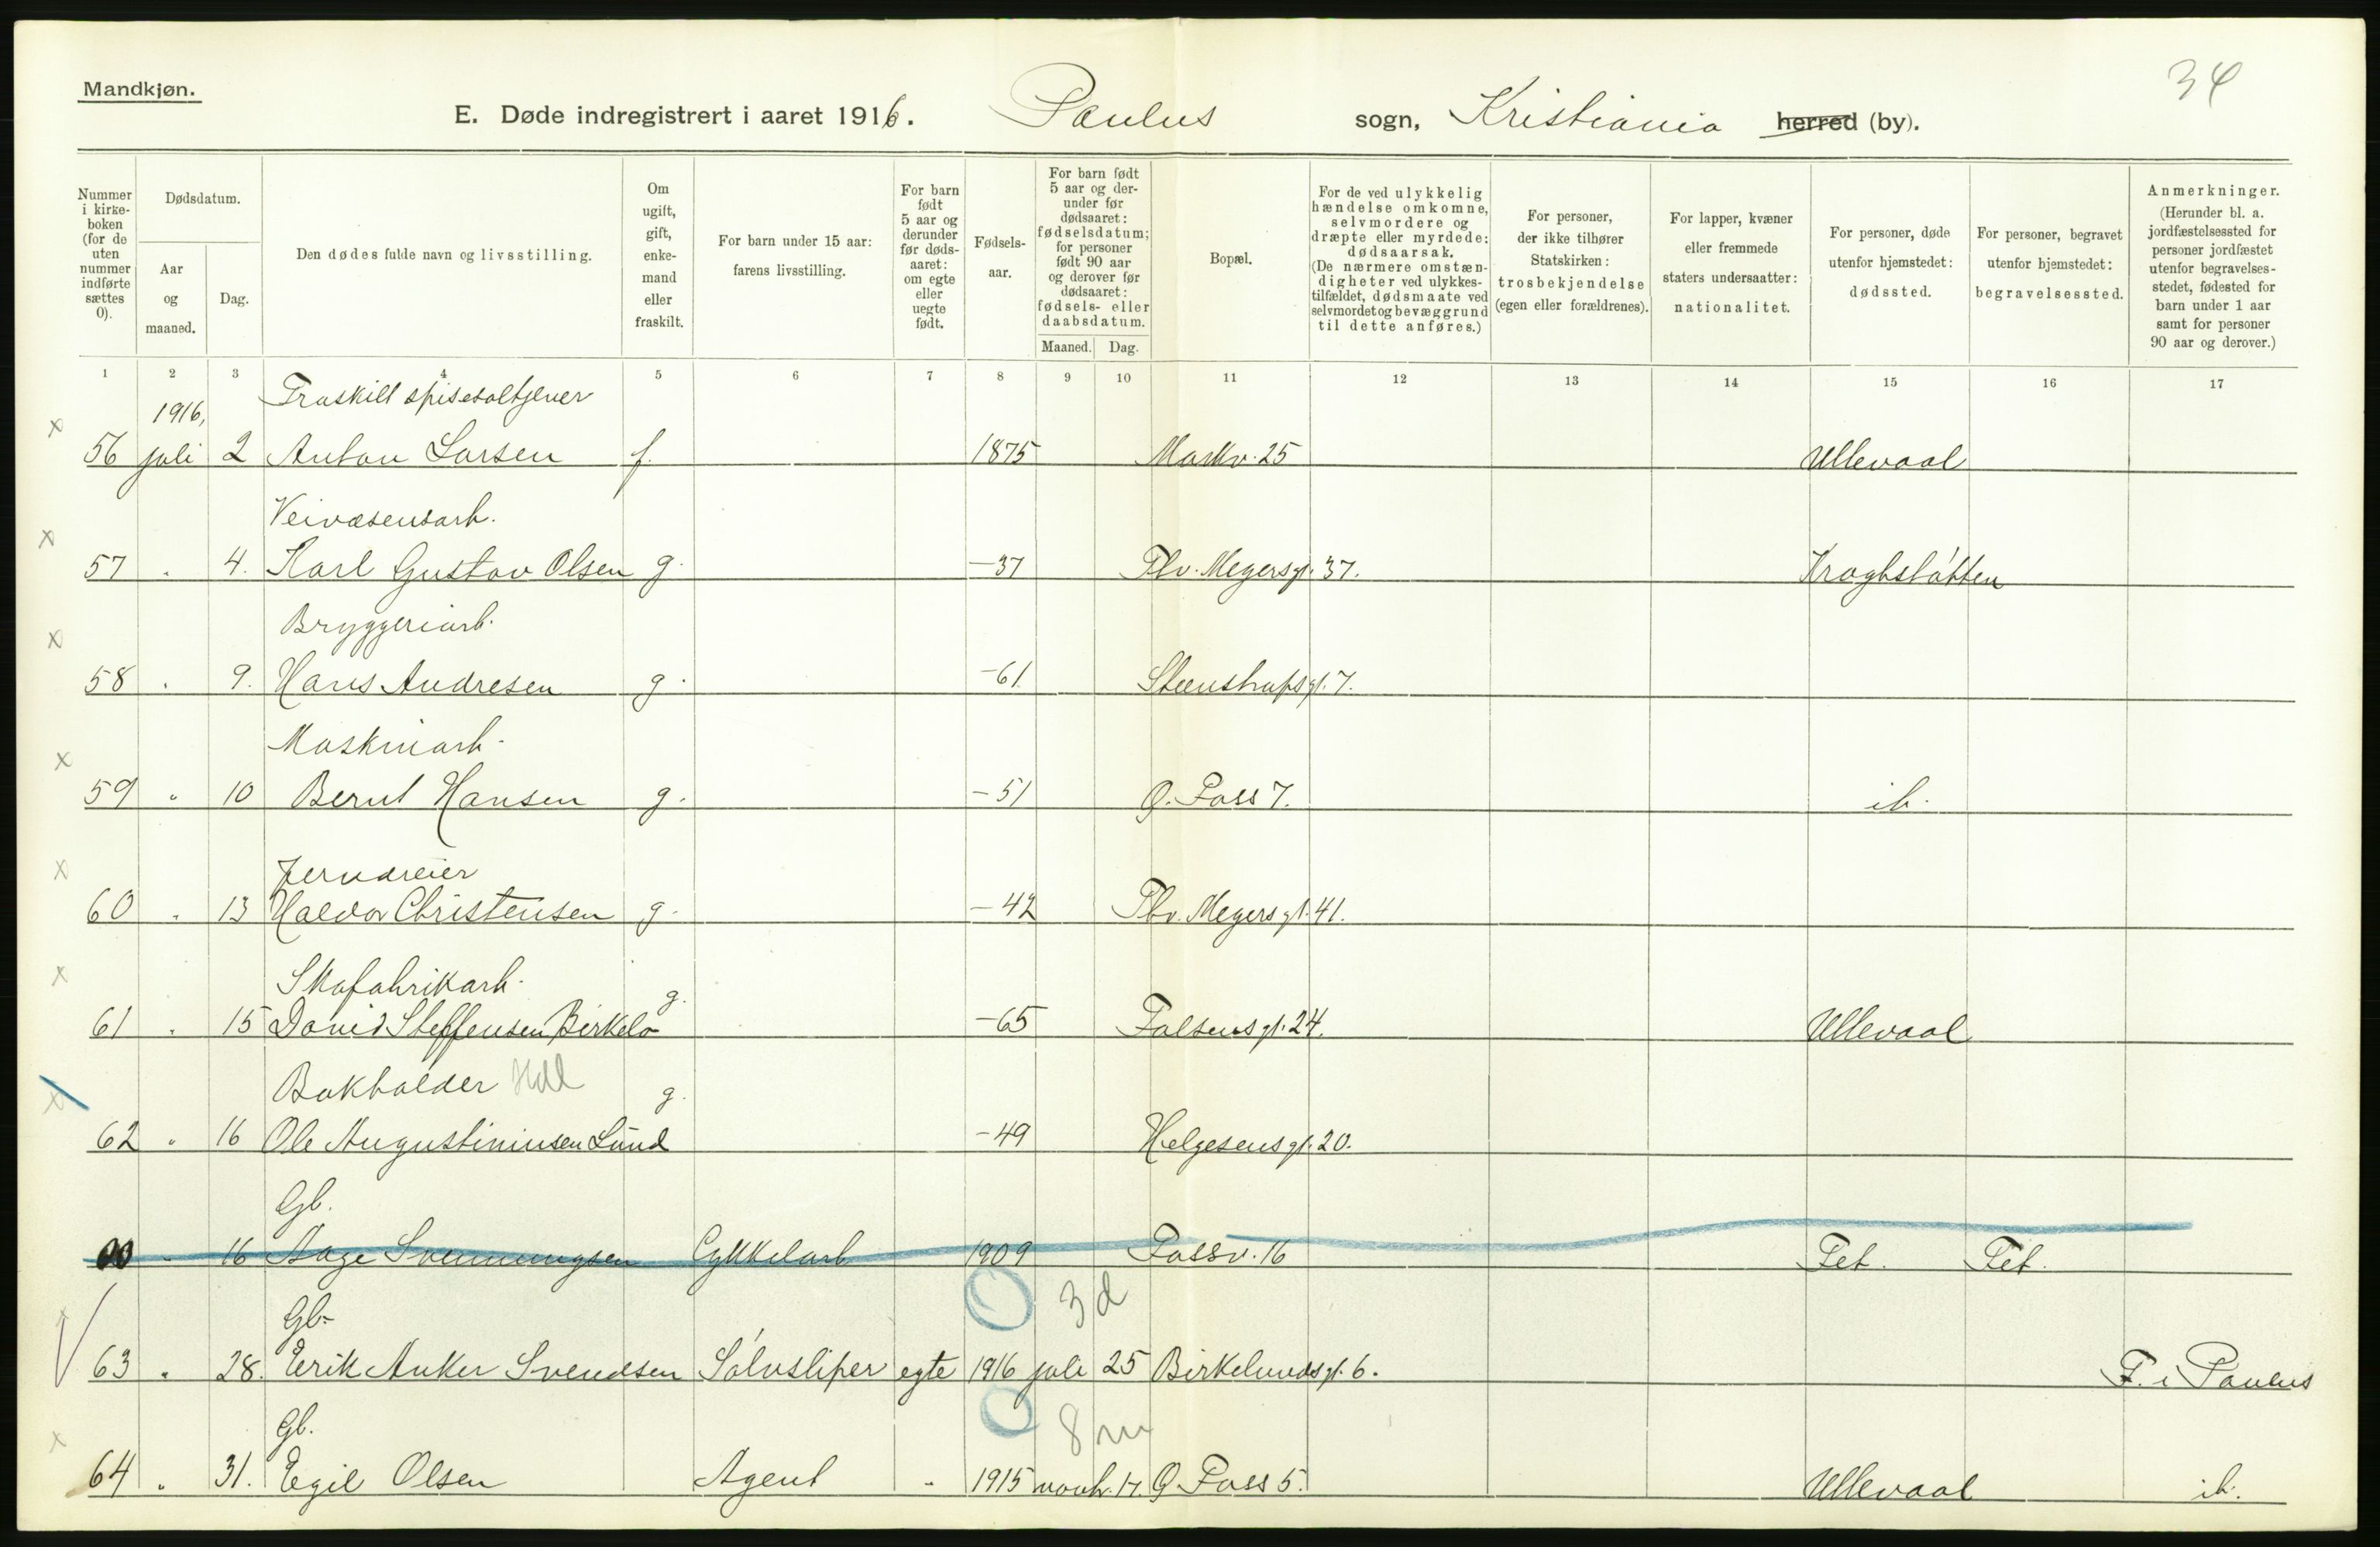 34
Mandkjøn.
E. Døde indregistrert i aaret 1916. Paulus sogn, Kristiania herred (by).
Nummer i kirkeboken (for de uten nummer indførte sættes 0).
Dødsdatum.
Aar og maaned.
Dag.
Den dødes fulde navn og livsstilling.
Om ugift, gift, enkemand eller fraskilt.
For barn under 15 aar: farens livsstilling.
For barn født 5 aar og derunder før dødsaaret: om egte eller uegte født.
Fødselsaar.
For barn født 5 aar og derunder før dødsaaret: fødselsdatum; for personer født 90 aar og derover før dødsaaret: fødsels- eller daabsdatum.
Maaned. Dag.
Bopæl.
For de ved ulykkelig hændelse omkomne, selvmordere og dræpte eller myrdede: dødsaarsak. (De nærmere omstændigheter ved ulykkestilfældet, dødsmaate ved selvmordet og bevæggrund til dette anføres.)
For personer, der ikke tilhører Statskirken: trosbekjendelse (egen eller forældrenes).
For lapper, kvæner eller fremmede staters undersaatter: nationalitet.
For personer, døde utenfor hjemstedet: dødssted.
For personer, begravet utenfor hjemstedet: begravelsessted.
Anmerkninger. (Herunder bl. a. jordfæstelsessted for personer jordfæstet utenfor begravelsesstedet, fødested for barn under 1 aar samt for personer 90 aar og derover.)
1 2 3 4 5 6 7 8 9 10 11 12 13 14 15 16 17
1916, Fraskilt spisesaltjener
x 56 juli 2 Anton Larsen f. 1875 Markv. 25 Ullevaal
Veivæsensarb.
x 57 " 4. Karl Gustav Olsen g. -37 Thv. Meyersgt. 37. Kroghstøtten
Bryggeriarb.
x 58 " 9. Hans Andresen g. -61 Steenstrupsgt. 7.
Maskinarb.
x 59 " 10 Bernt Hansen g. -51 Ø. Foss 7. ib.
Jerndreier
x 60 " 13 Halvor Christensen g. -42 Thv. Meyersgt. 41.
Skofabrikarb.
x 61 " 15 David Steffensen Birkelo g. -65 Falsensgt. 24. Ullevaal
Bokholder Hdl
x 62 " 16 Ole Augustiniusen Lund g. -49 Helgesensgt. 20.
Gb.
00 " 16 Aage Svenningsen Cykkelarb 1909 Fossv. 16 Fet. Fet.
Gb. 3 d
63 " 28. Erik Anker Svendsen Sølvsliper egte 1916 juli 25 Birkelundsgt. 6. F. i Paulus
Gb. 8 m
x 64 " 31. Egil Olsen Agent " 1915 novb. 17. Ø Foss 5. Ullevaal ib.